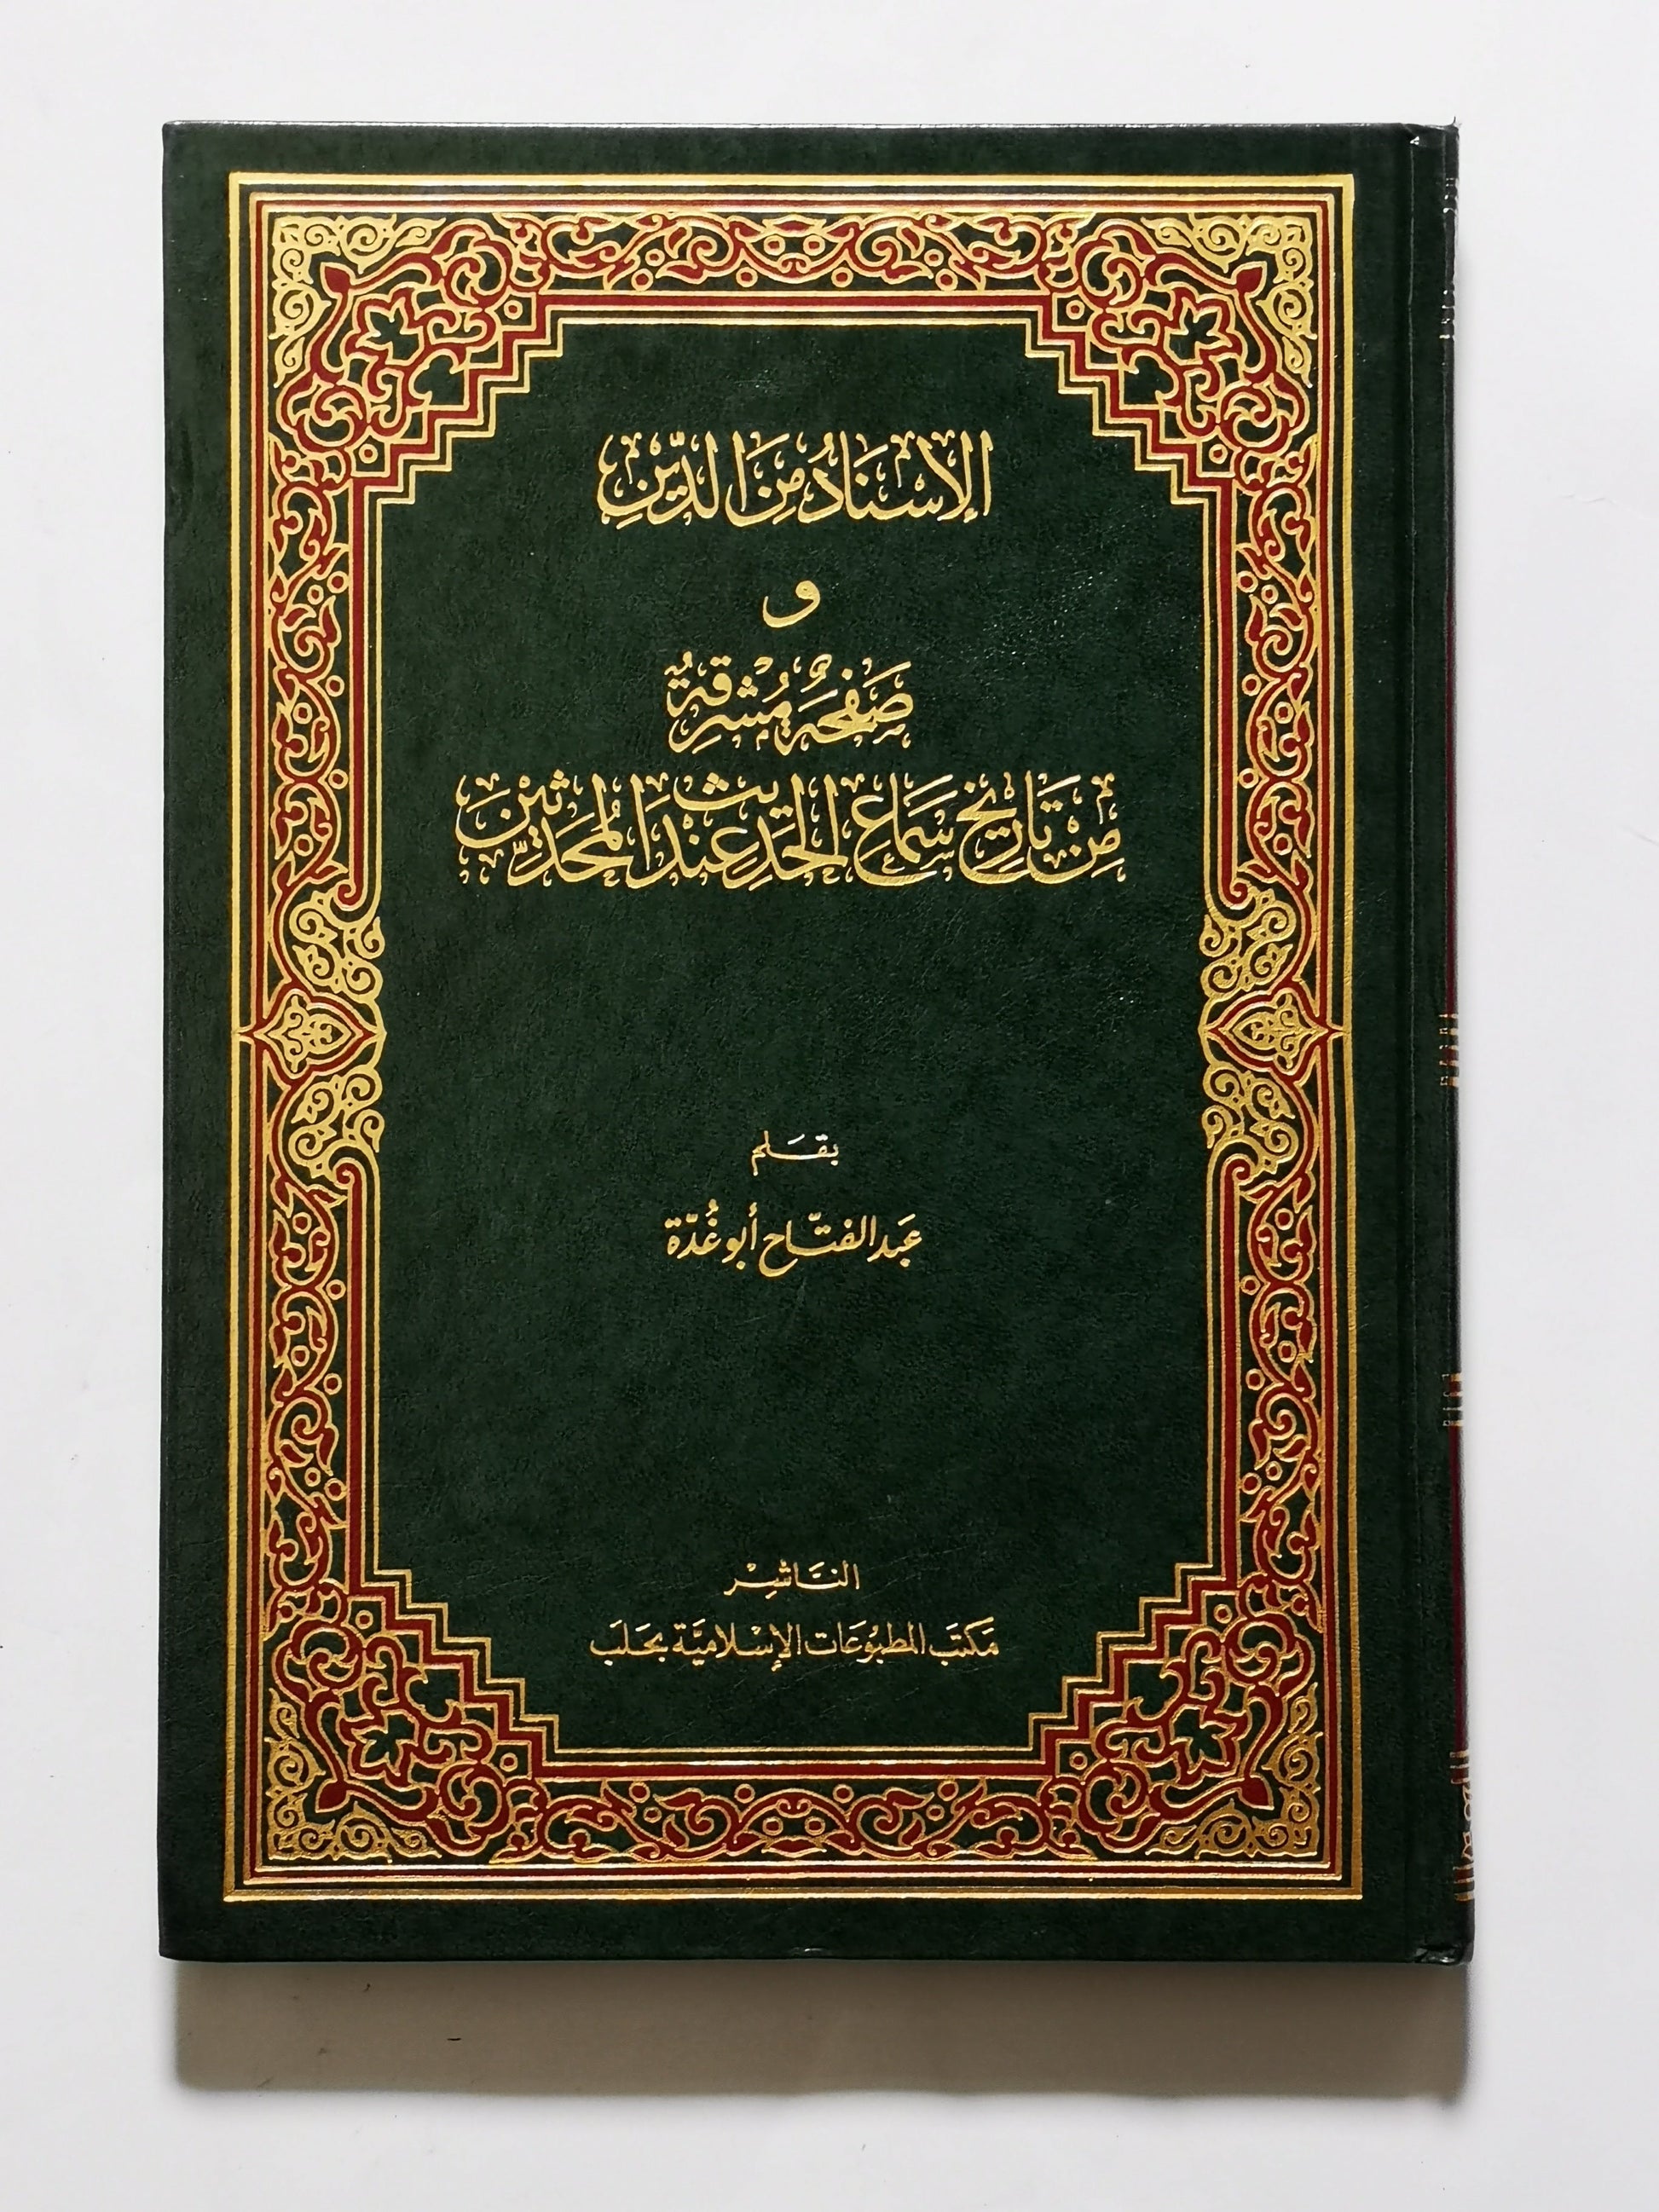 الإسنَادُ مِنَ الدّينِ
و
صَفحَةٌ مُشرِقةٌ
مِن تَاريخ سَمَاعِ الحَديثِ عِندَ المُحَدّثيْنَ
بقَلم
عَبدالفتّاح أبوغُدّة
النَاشِر
مَكتَب المطبُوعَات الإسْلاميَّة بحَلَب